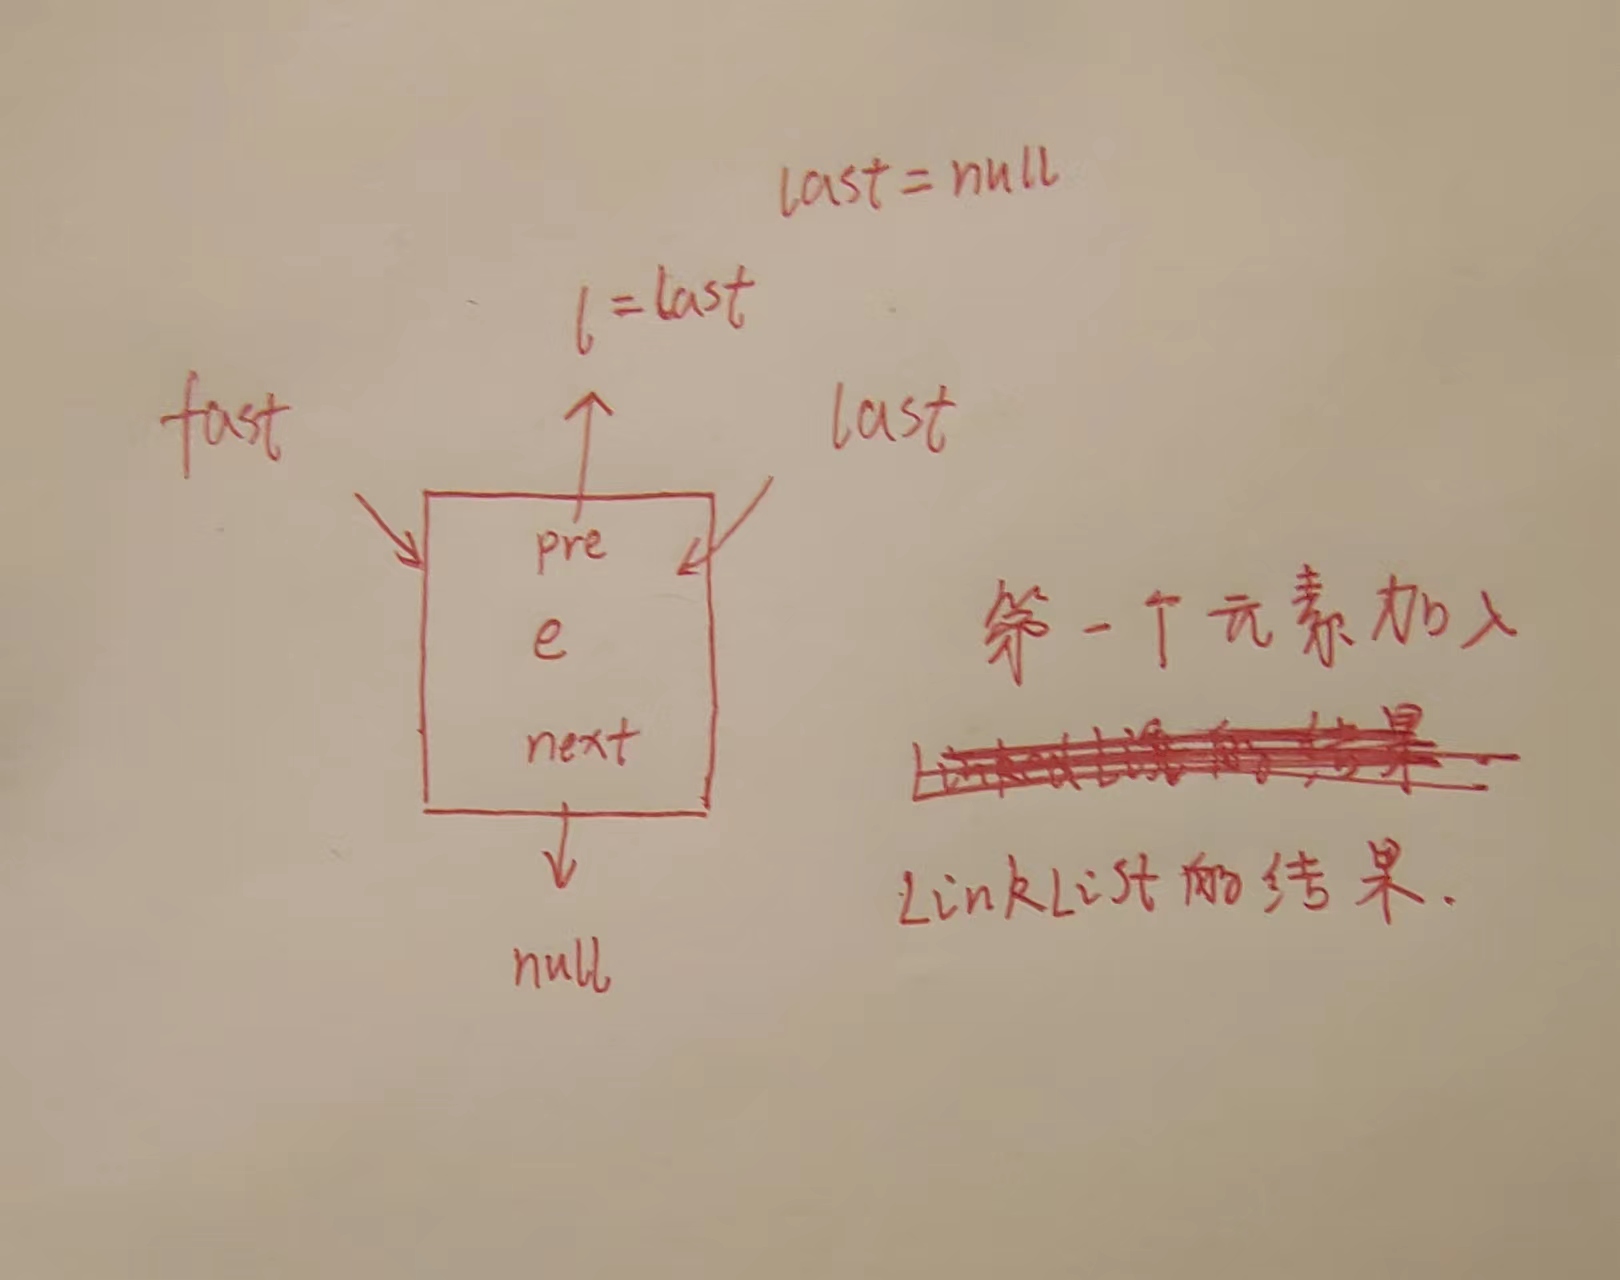 last=null
l=last
fast
last
pre
e
next
null
第一个元素加入
LinkList的结果.